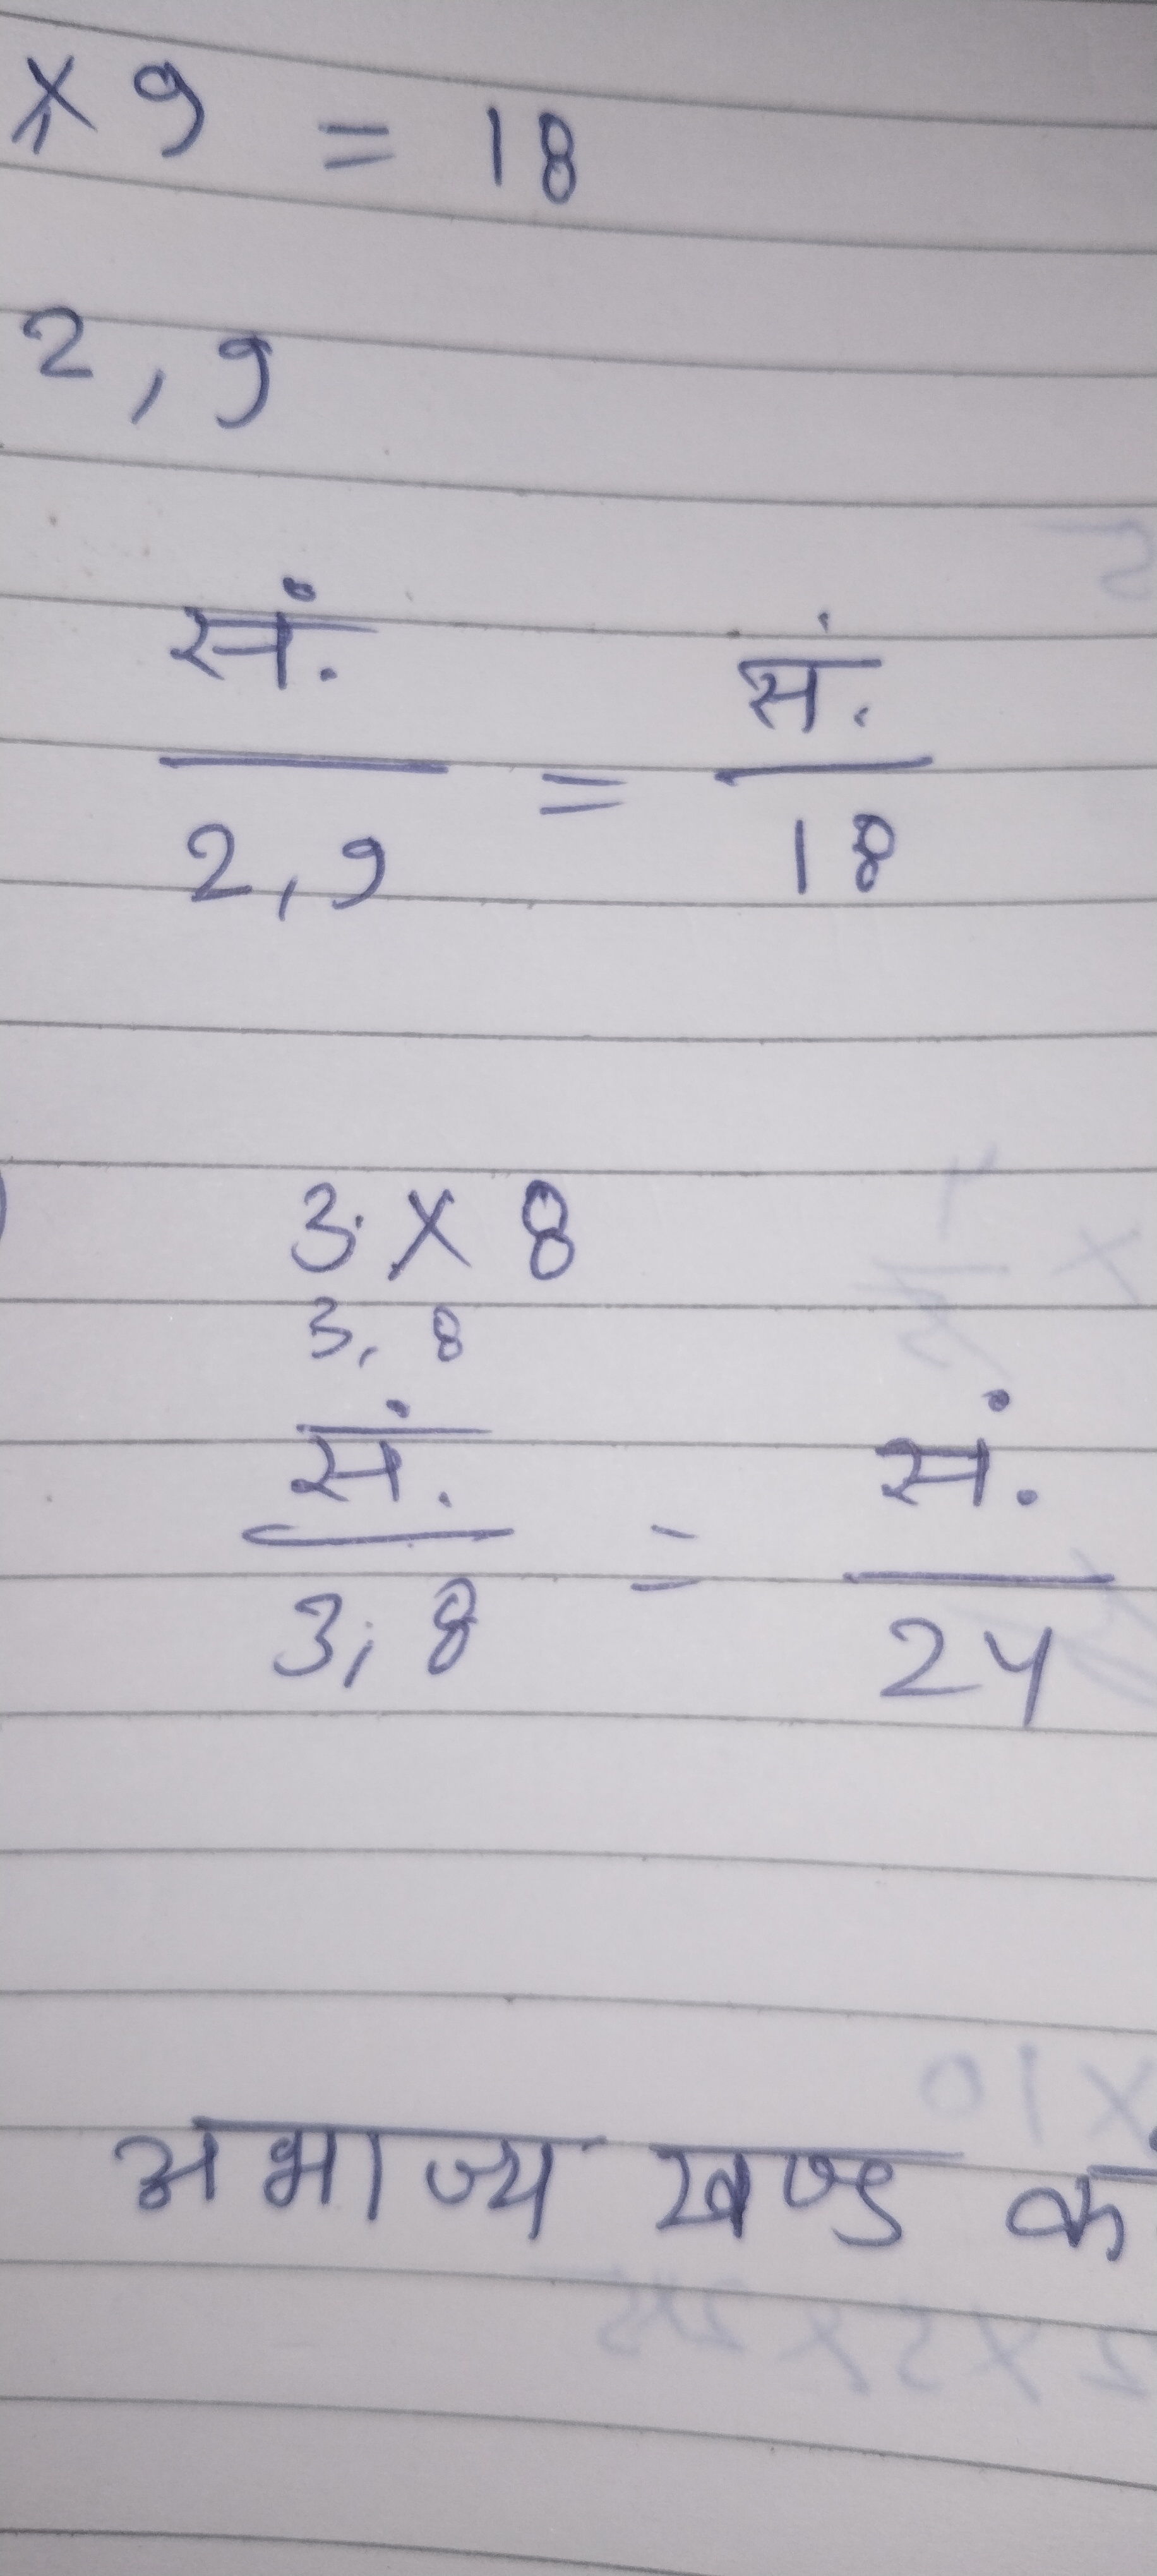 x 9 = 18
2, 9
सं. / 2, 9 = सं. / 18
3 x 8
3, 8
सं. / 3, 8 = सं. / 24
अभाज्य खण्ड क